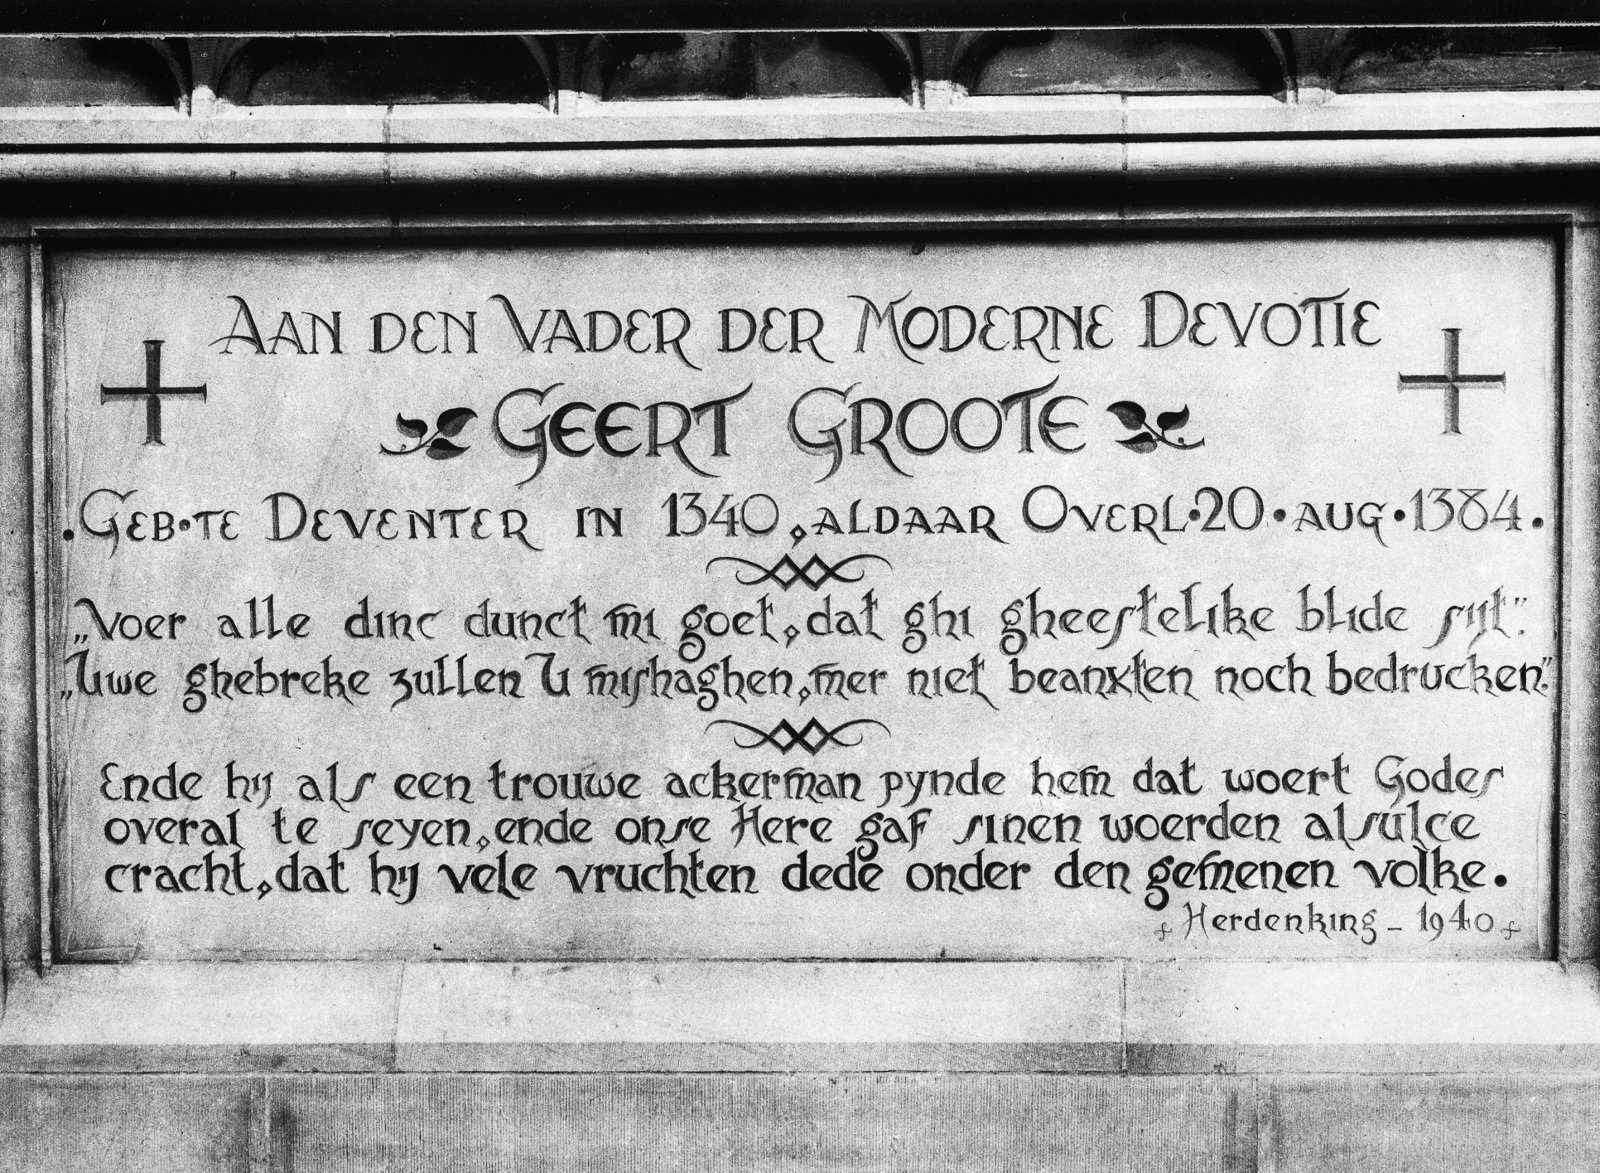 Aan den Vader der Moderne Devotie
Geert Groote
·Geb·te Deventer in 1340, aldaar Overl·20·aug·1384·
„Voer alle dinc dunct mi goet, dat ghi gheestelike blide sijt”.
„Uwe ghebreke zullen U mishaghen, mer niet beanxten noch bedrucken.”
Ende hij als een trouwe ackerman pynde hem dat woert Godes
overal te seyen, ende onse Here gaf sinen woerden alsulce
cracht, dat hij vele vruchten dede onder den gemenen volke.
Herdenking – 1940